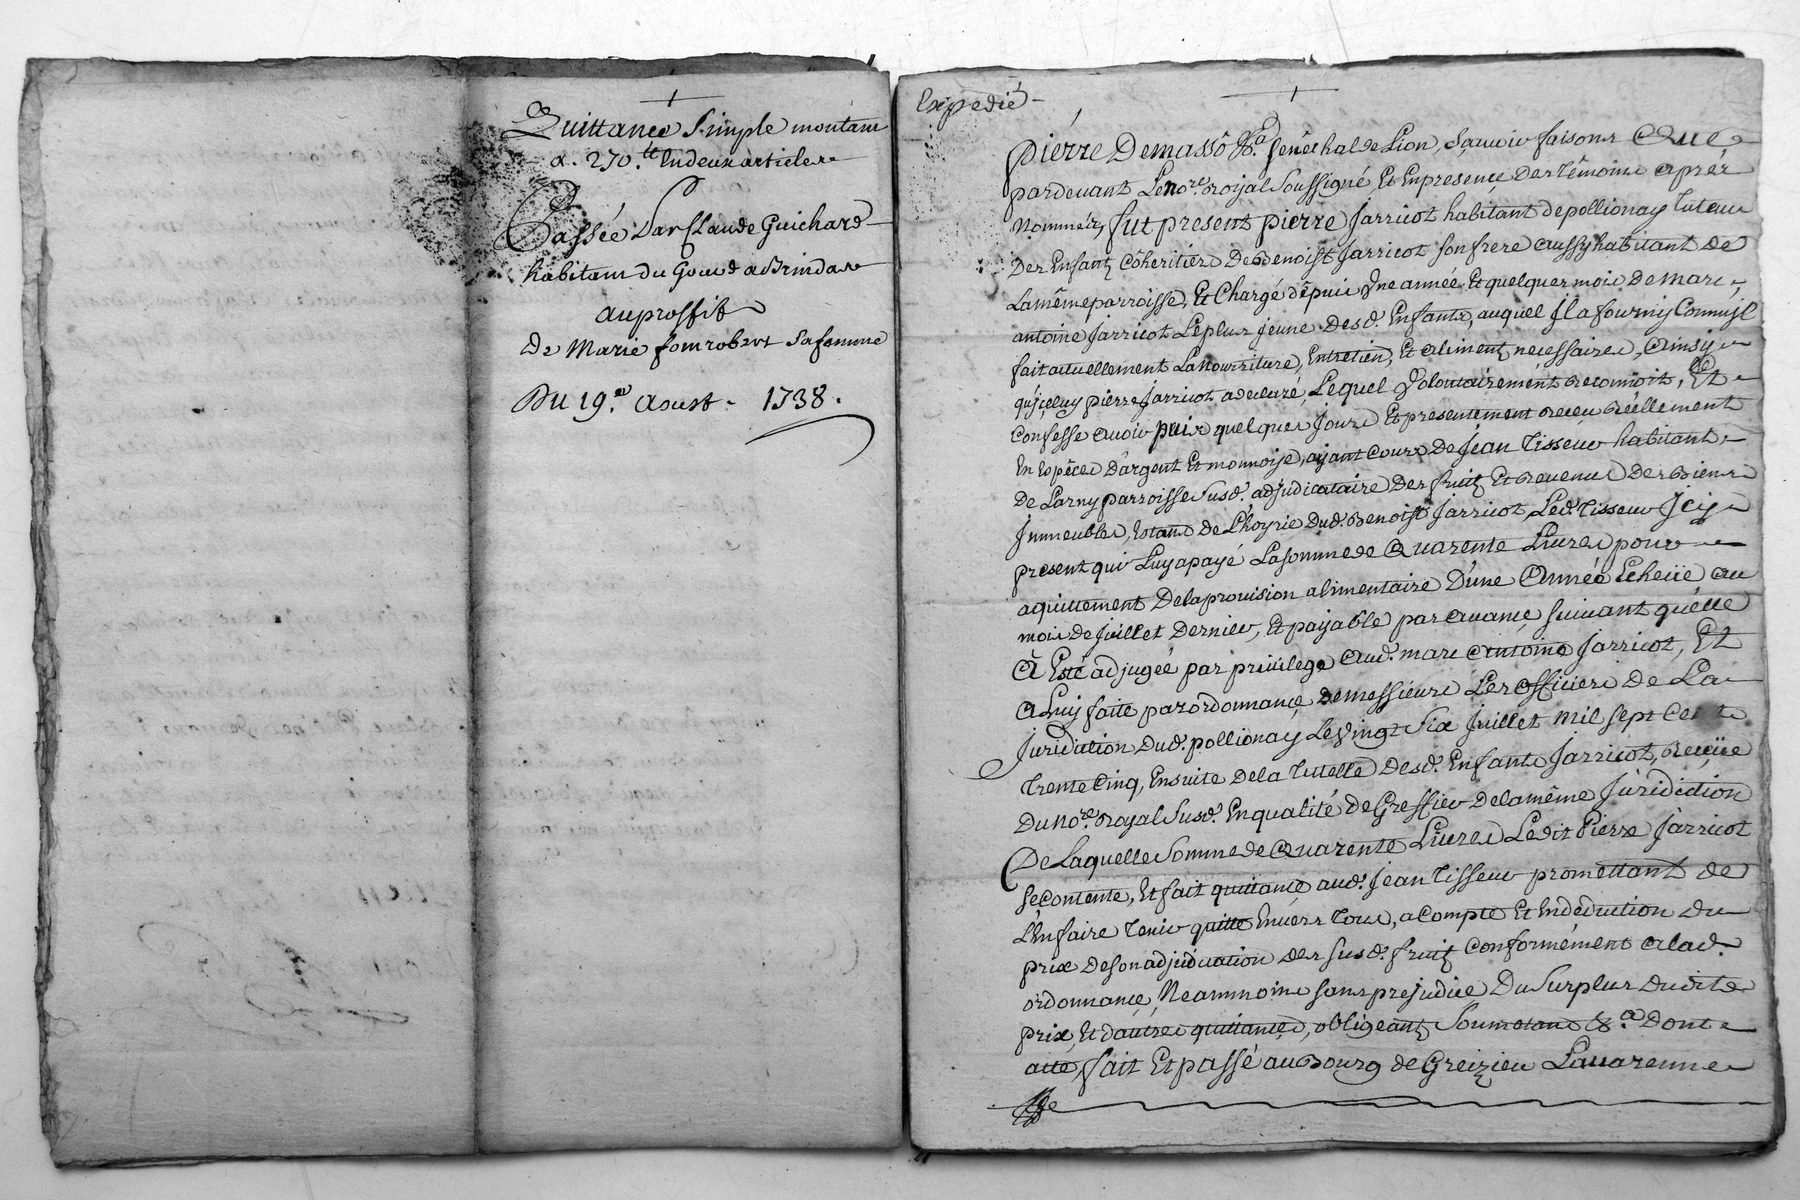 Quittance Simple montant
a. 270.lt En deux articles
Passée Par Claude Guichard
habitant du Goud a Brindas
au proffit
de Marie fomrobert Sa femme
Du 19.e Aoust - 1738.
Expedié
Pierre Demassô &a. senêchal de Lion, Sçavoir faisons Que
pardevant Le Nore. royal Soussigné Et En presence Des Têmoins aprés
Nommés, fut present pierre Jarricot habitant de pollionay Tuteur
Des Enfants Côheritiers De Benoist Jarricot son frere aussy habitant de
La même parroisse, Et Chargé dêpuis Une année Et quelques mois De marc
antoine Jarricot Le plus jeune Desd. Enfants, auquel Jl a fourny Comm'jl
fait actuellement La Nourriture, Entretien, Et aliments necessaires, Ainsy
qu'jceluy pierre Jarricot a declaré, Lequel Volontairemént reconnoit, Et
Confesse avoir puis quelques Jours Et presentement receu réellement
En Espêces D'argent Et monnoye, ayant Cours De Jean Tisseur habitant
De Larny parroisse Susd. adjudicataire Des fruits Et revenus Des Biens
Jmmeubles, Estans de L'hoyrie Dud. Benoist Jarricot, Led. Tisseur Jcy
present qui Luy a payé La somme de Quarente Livres pour
aquittement De la provision alimentaire D'une Année Echeüe au
mois de Juillet Dernier, Et payable par avance suivant qu'elle
à Esté adjugée par privilege aud. marc Antoine Jarricot, Et
a Luy faite par ordonnance de messieurs Les officiers de La
Juridiction Dud. pollionay Le Vingt Six Juillet mil sept Cents
Trente Cinq, Ensuite De la Tutelle Desd. Enfants Jarricot, receüe
Du Nore. royal Susd. En qualité de Greffier De la même Juridiction
De Laquelle Somme de Quarente Livres Ledit Pierre Jarricot
se contente, Et fait quittance aud. Jean Tisseur promettant de
L'En faire Tenir quitte Envers Tous, a Compte Et En déduction Du
prix De son adjudication des susd. fruits Conformément a lad.
ordonnance, Neanmoins sans prejudice Du Surplus Dudit
prix, Et d'autres quittances, obligeants Soumetans &a Dont
acte, fait Et passé au Bourg de Greizieu Lavarenne